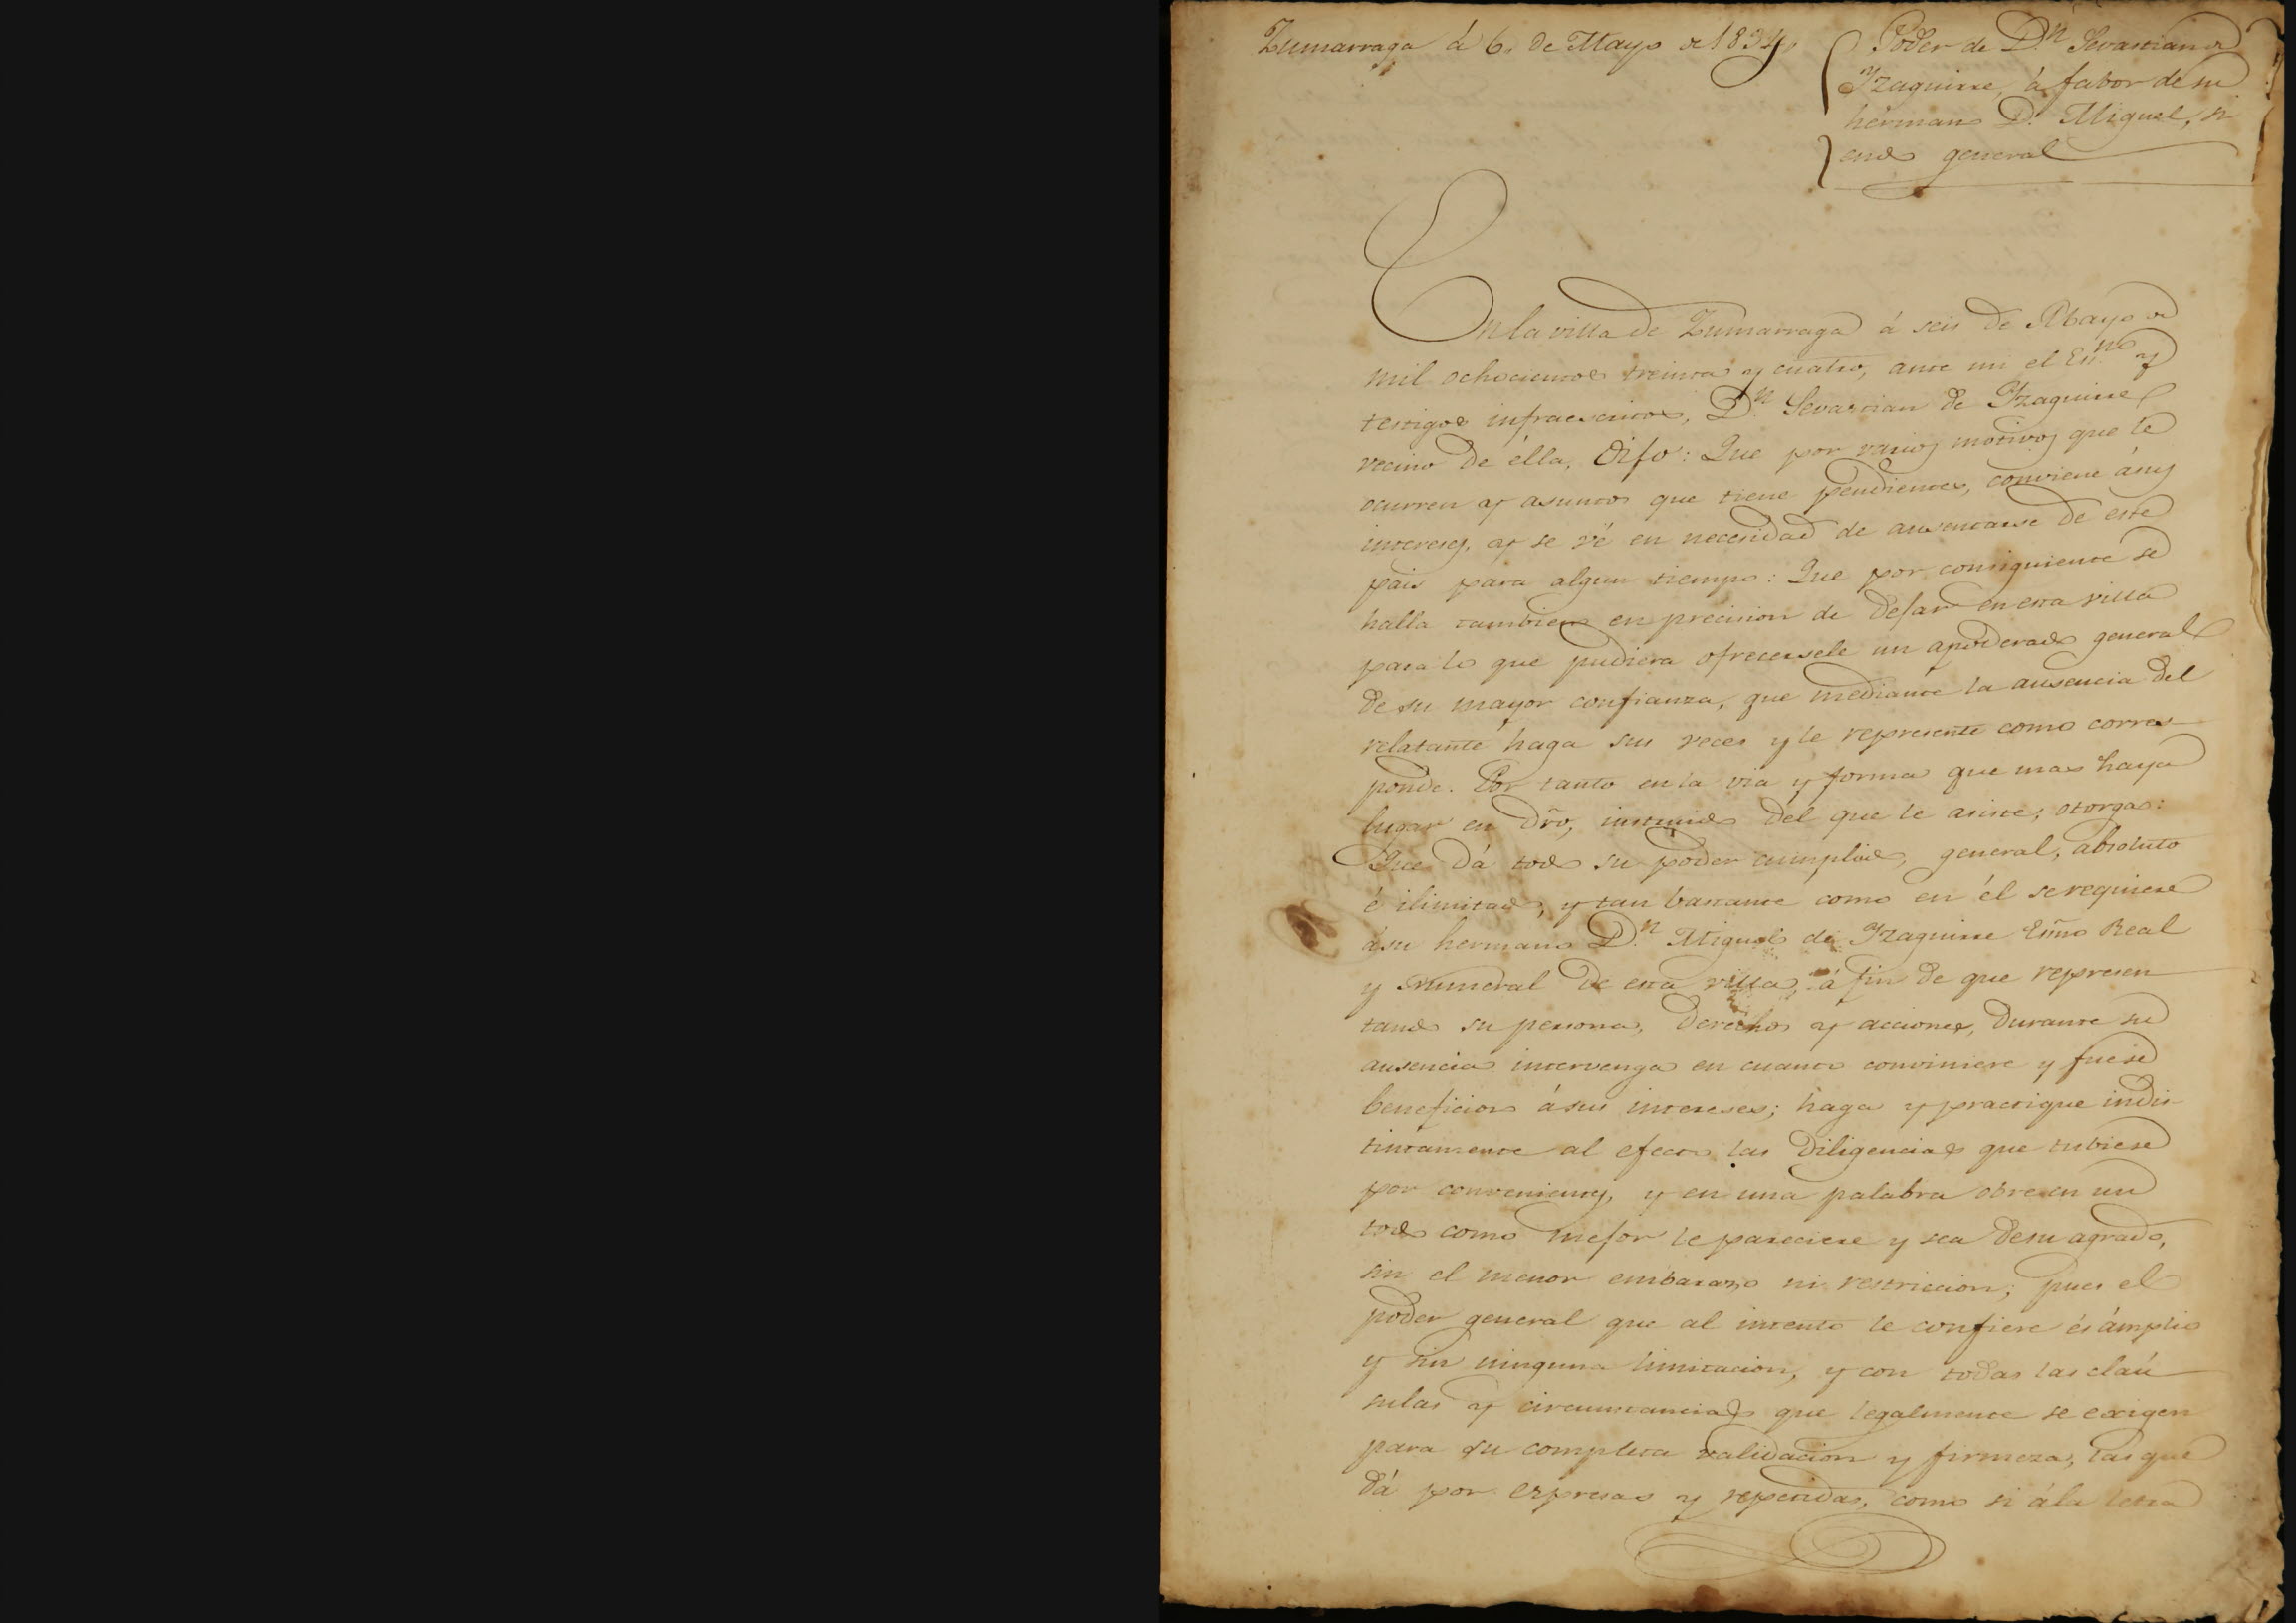 Zumarraga á 6. de Mayo de 1834.
Poder de D.n Sevastian de
Yzaguirre, á fabor de su
hermano D. Miguel, si
endo general
En la villa de Zumarraga á seis de Mayo de
mil ochocientos treinta y cuatro, ante mi el Es.no y
testigos infraescritos, D.n Sevastian de Yzaguirre
vecino de élla, Dijo: Que por varios motivos que le
ocurren y asuntos que tiene pendientes, conviene ásus
intereses, y se vé en necesidad de ausentarse de este
pais para algun tiempo: Que por consiguiente se
halla tambien en precision de dejar en esta villa
para lo que pudiera ofrecersele un apoderado general
de su mayor confianza, que mediante la ausencia del
relatante haga sus veces y le represente como corres-
ponde. Por tanto en la via y forma que mas haya
lugar en dro, instruido del que le asiste, otorga:
Que dá todo su poder cumplido, general, absoluto
é ilimitado, y tan bastante como en él se requiere
ásu hermano D.n Miguel de Yzaguirre Esno Real
y numeral de esta villa, á fin de que represen
tando su persona, derechos y acciones, durante su
ausencia intervenga en cuanto conviniere y fuese
beneficioso ásus intereses; haga y practique indis-
tintamente al efecto las diligencias que tubiese
por convenientes, y en una palabra obre en un
todo como mejor le pareciere y sea desu agrado,
sin el menor embarazo ni restriccion; pues el
poder general que al intento le confiere és ámplio
y sin ninguna limitacion, y con todas las claú
sulas y circunstancias que legalmente se exigen
para su completa validacion y firmeza, las que
dá por expresas y repetidas, como si ála letra